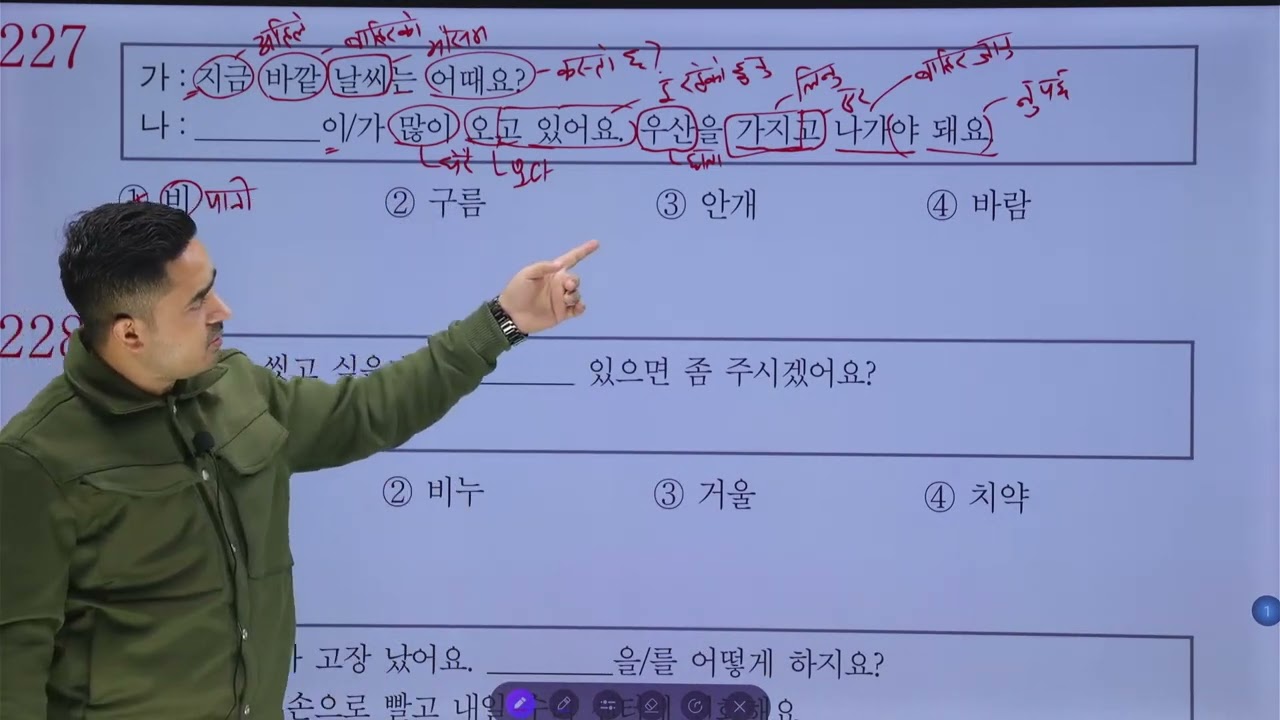 227
अहिले बाहिरको मौसम
가 : 지금 바깥 날씨는 어때요? कस्तो छ?
나 : ________ 이/가 많이 오고 있어요. 우산을 가지고 나가야 돼요
धेरै 오다 छाता
① 비 पानी ② 구름 ③ 안개 ④ 바람
228
씻고 ________ 있으면 좀 주시겠어요?
② 비누 ③ 거울 ④ 치약
고장 났어요. ________을/를 어떻게 하지요?
손으로 빨고 내일
1